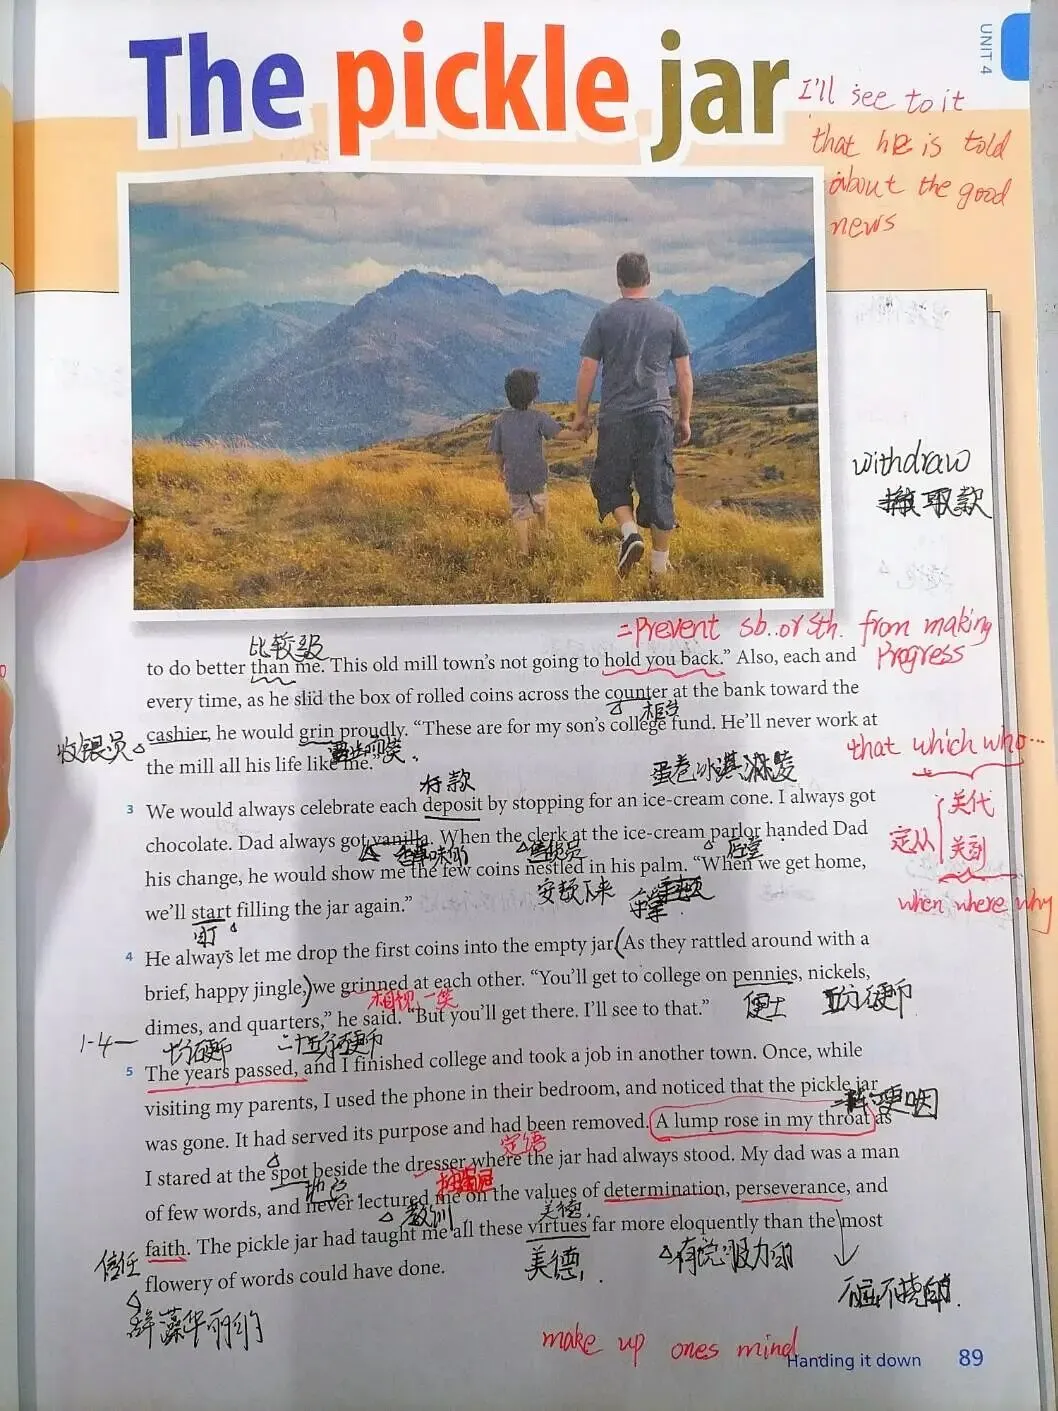 UNIT 4
The pickle jar
I'll see to it
that he is told
about the good
news
withdraw
取款
=prevent sb. or sth. from making
progress
比较级
to do better than me. This old mill town's not going to hold you back." Also, each and
every time, as he slid the box of rolled coins across the counter at the bank toward the
柜台
收银员
cashier, he would grin proudly. "These are for my son's college fund. He'll never work at
the mill all his life like me."
that which who...
存款
蛋卷冰淇淋
3 We would always celebrate each deposit by stopping for an ice-cream cone. I always got
chocolate. Dad always got vanilla. When the clerk at the ice-cream parlor handed Dad
定从
关代
关副
his change, he would show me the few coins nestled in his palm. "When we get home,
安顿下来
手掌
when where why
we'll start filling the jar again."
4 He always let me drop the first coins into the empty jar. As they rattled around with a
brief, happy jingle, we grinned at each other. "You'll get to college on pennies, nickels,
相视一笑
便士
五分硬币
dimes, and quarters," he said. "But you'll get there. I'll see to that."
1-4—
十分硬币
二十五分硬币
5 The years passed, and I finished college and took a job in another town. Once, while
visiting my parents, I used the phone in their bedroom, and noticed that the pickle jar
哽咽
was gone. It had served its purpose and had been removed. A lump rose in my throat as
定语
I stared at the spot beside the dresser where the jar had always stood. My dad was a man
地点
of few words, and never lectured me on the values of determination, perseverance, and
教训
美德
信任
faith. The pickle jar had taught me all these virtues far more eloquently than the most
美德
有说服力的
flowery of words could have done.
辞藻华丽的
make up ones mind
Handing it down 89